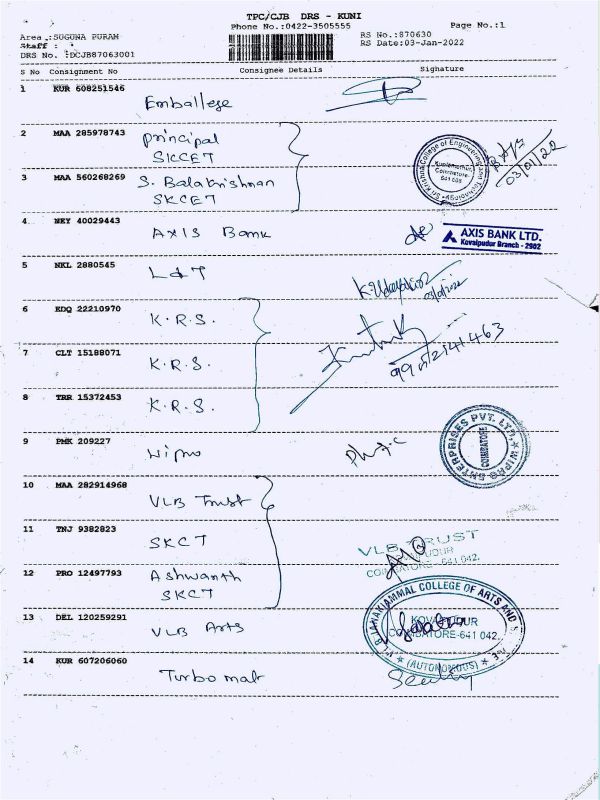 TPC/CJB DRS - KUNI
Phone No.:0422-3505555
Page No.:1
Area :SUGUNA PURAM
RS No.:870630
Staff :
RS Date:03-Jan-2022
DRS No. :DCJB87063001
S No Consignment No Consignee Details Signature
1 KUR 608251546 Emballege
2 MAA 285978743 principal
SKCET
Sri Krishna College of Engineering and Technology
Kuniamuthur,
Coimbatore-
641 008
03/01/22
3 MAA 560268269 S. Balakrishnan
SKCET
4 NEY 40029443 AXIS Bank
AXIS BANK LTD.
Kovaipudur Branch - 2902
5 NKL 2880545 L&T
6 EDQ 22210970 K.R.S.
7 CLT 15188071 K.R.S.
8 TRR 15372453 K.R.S.
9 PMK 209227 Wipro
WIPRO ENTERPRISES PVT. LTD.
COIMBATORE
10 MAA 282914968 VLB Trust
11 TNJ 9382823 SKCT
VLB TRUST
COIMBATORE-641 042.
12 PRO 12497793 Ashwanth
SKCT
13 DEL 120259291 VLB Arts
V.L.B. JANAKIAMMAL COLLEGE OF ARTS AND
KOVAIPUDUR
COIMBATORE-641 042
(AUTONOMOUS)
14 KUR 607206060 Turbo mat